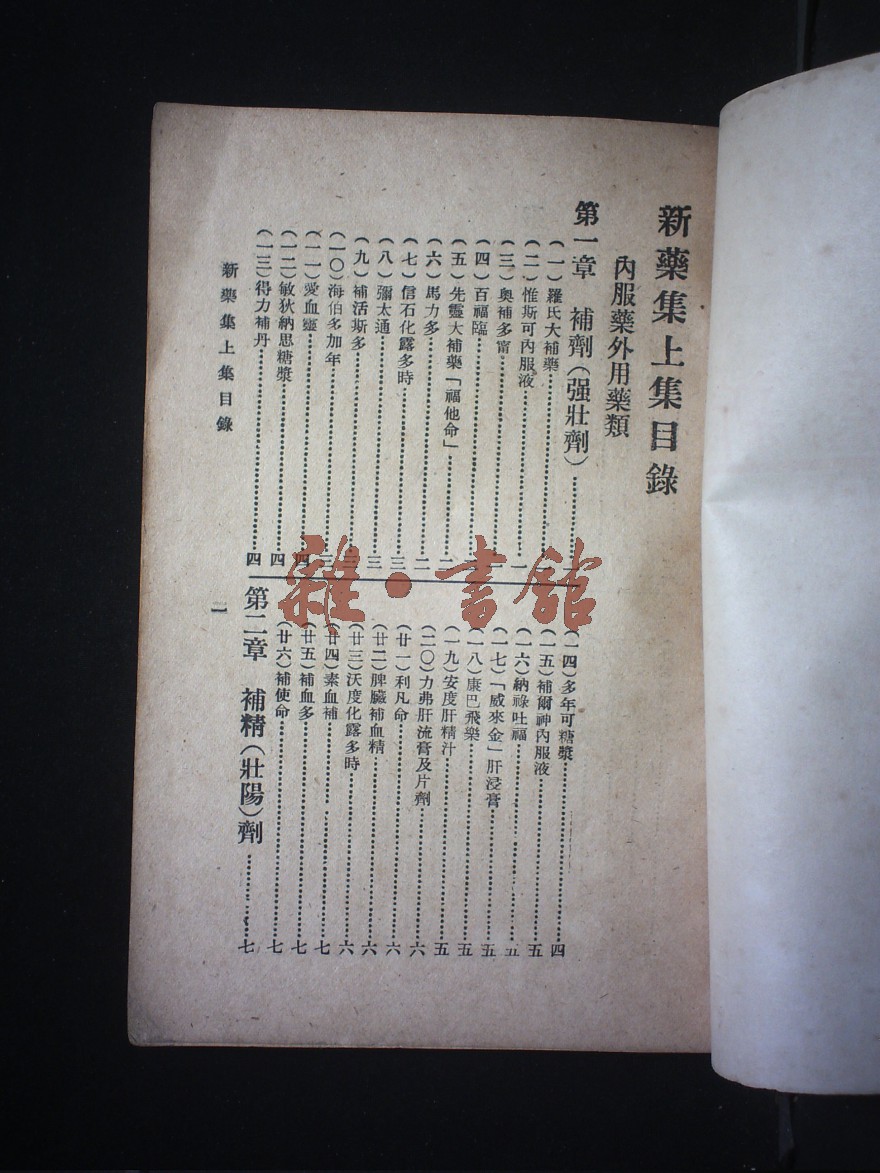 新藥集上集目錄
內服藥外用藥類
第一章 補劑(强壯劑)…………
(一)羅氏大補藥…………
(二)惟斯可內服液…………一
(三)奧補多甯…………
(四)百福臨…………
(五)先靈大補藥「福他命」…………二
(六)馬力多…………二
(七)信石化露多時…………三
(八)彌太通…………三
(九)補活斯多…………三
(一〇)海伯多加年…………三
(一一)愛血靈…………四
(一二)敏狄納思糖漿…………四
(一三)得力補丹…………四
(一四)多年可糖漿…………四
(一五)補爾神內服液…………五
(一六)納祿吐福…………五
(一七)「威來金」肝浸膏…………五
(一八)康巴飛樂…………五
(一九)安度肝精汁…………五
(二〇)力弗肝流膏及片劑…………六
(廿一)利凡命…………六
(廿二)脾臟補血精…………六
(廿三)沃度化露多時…………六
(廿四)素血補…………七
(廿五)補血多…………七
(廿六)補使命…………七
第二章 補精(壯陽)劑…………七
新藥集上集目錄
一
雜·書館